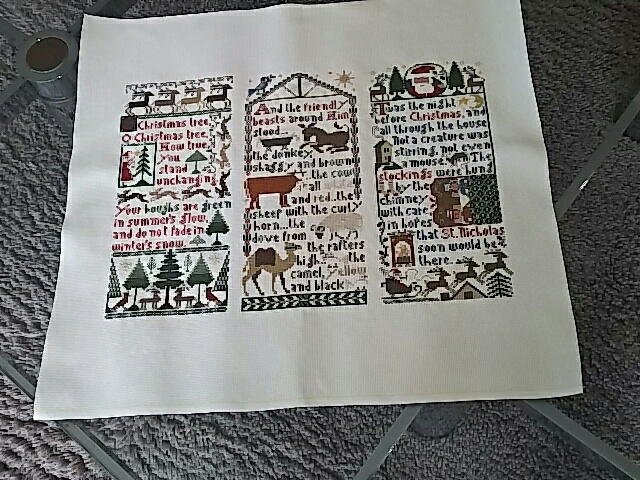 Christmas tree,
O Christmas tree,
How true
you
stand
unchanging
Your boughs are green
in summer's glow,
and do not fade in
winter's snow.
And the friendly
beasts around Him
stood...
the donkey,
shaggy and brown
...the cow
all white
and red...the
sheep with the curly
horn...the
dove from
the rafters
high...the
camel, yellow
and black
Twas the night
before Christmas, and
all through the house
Not a creature was
stirring, not even
a mouse. The
stockings were hung
by the
chimney
with care
in hopes
that St. Nicholas
soon would be
there...